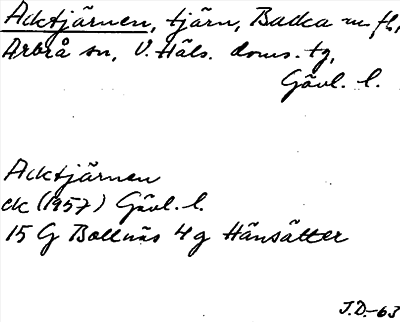 Acktjärnen, tjärn, Backa m fl,
Arbrå sn, V. Häls. doms. tg,
Gävl. l.
Acktjärnen
ek (1957) Gävl. l.
15 G Bollnäs 4g Hänsätter
J.D.-63